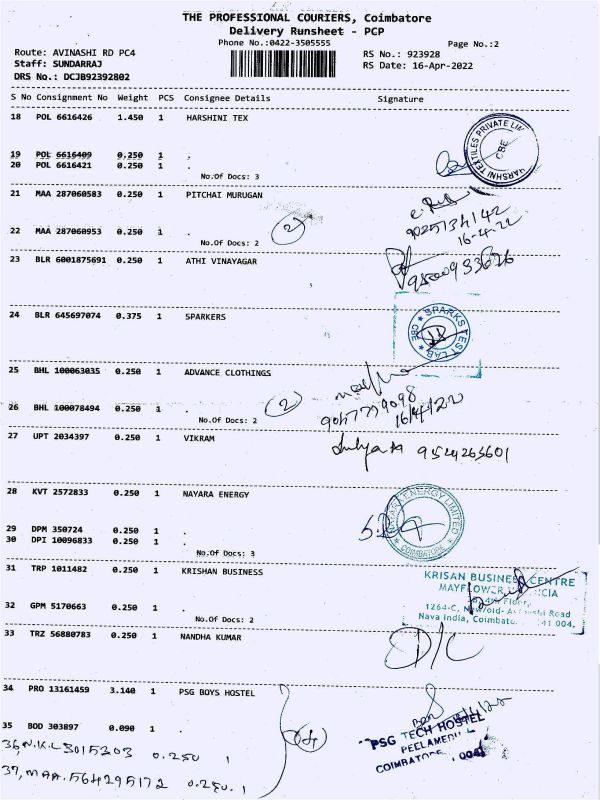 THE PROFESSIONAL COURIERS, Coimbatore
Delivery Runsheet - PCP
Phone No.:0422-3505555
Page No.:2
Route: AVINASHI RD PC4
RS No.: 923928
Staff: SUNDARRAJ
RS Date: 16-Apr-2022
DRS No.: DCJB92392802
S No Consignment No Weight PCS Consignee Details Signature
18 POL 6616426 1.450 1 HARSHINI TEX
HARSHNI TEXTILES PRIVATE
CBE
19 POL 6616409 0.250 1 .
20 POL 6616421 0.250 1 .
No.Of Docs: 3
21 MAA 287060583 0.250 1 PITCHAI MURUGAN
9025134142
16-4-22
22 MAA 287060953 0.250 1 .
No.Of Docs: 2
2
23 BLR 6001875691 0.250 1 ATHI VINAYAGAR
24 BLR 645697074 0.375 1 SPARKERS
SPARKS TEST LAB
CBE
25 BHL 100063035 0.250 1 ADVANCE CLOTHINGS
26 BHL 100078494 0.250 1 .
No.Of Docs: 2
2
16/4/22
27 UPT 2034397 0.250 1 VIKRAM
28 KVT 2572833 0.250 1 NAYARA ENERGY
NAYARA ENERGY LIMITED
COIMBATORE
29 DPM 350724 0.250 1 .
30 DPI 10096833 0.250 1 .
No.Of Docs: 3
31 TRP 1011482 0.250 1 KRISHAN BUSINESS
KRISAN BUSINESS CENTRE
MAYFLOWER
1264-C, Road
Nava India, 41 004.
32 GPM 5170663 0.250 1 .
No.Of Docs: 2
33 TRZ 56880783 0.250 1 NANDHA KUMAR
D/C
34 PRO 13161459 3.140 1 PSG BOYS HOSTEL
PSG TECH HOSTEL
PEELAMEDU
COIMBATORE 004
35 BOD 303897 0.090 1 .
36, N.K.L 3015303 0.250 1
37, MAA. 564295172 0.250. 1